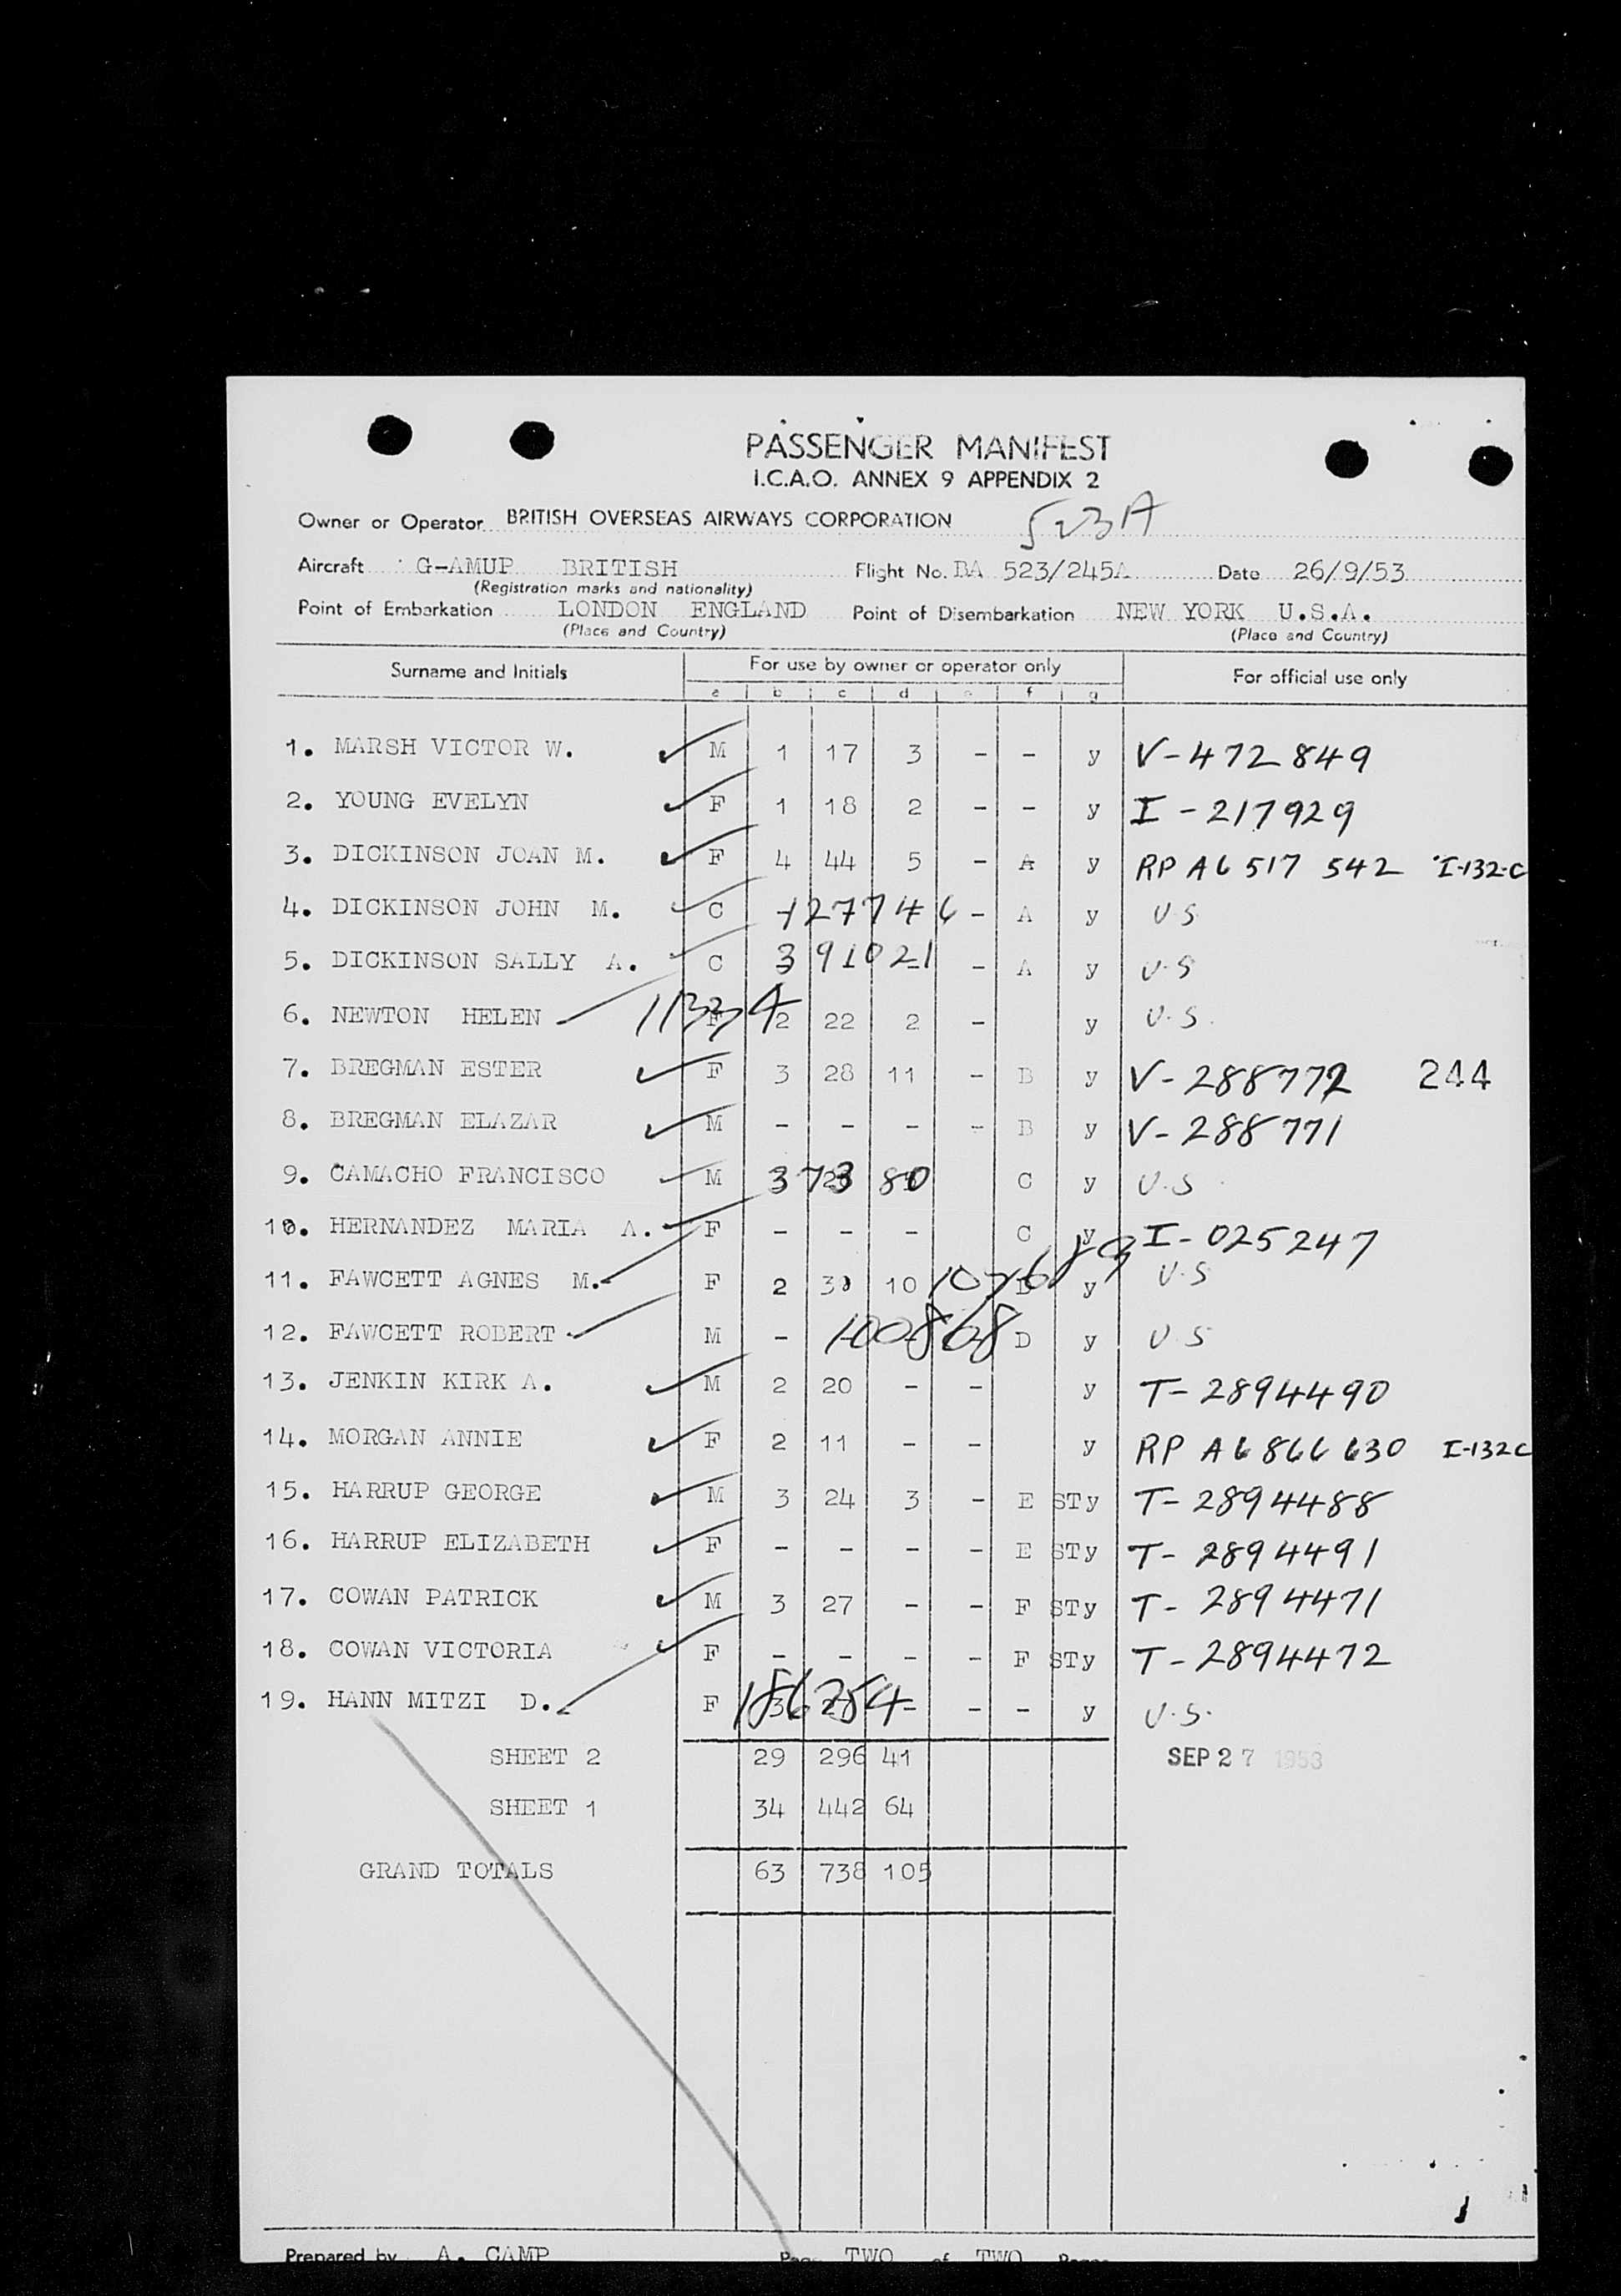 PASSENGER MANIFEST
I.C.A.O. ANNEX 9 APPENDIX 2
Owner or Operator BRITISH OVERSEAS AIRWAYS CORPORATION 523A
Aircraft G-AMUP BRITISH Flight No. BA 523/245A Date 26/9/53
(Registration marks and nationality)
Point of Embarkation LONDON ENGLAND Point of Disembarkation NEW YORK U.S.A.
(Place and Country) (Place and Country)
Surname and Initials For use by owner or operator only For official use only
a b c d e f g
1. MARSH VICTOR W. M 1 17 3 - - y V-472849
2. YOUNG EVELYN F 1 18 2 - - y I-217929
3. DICKINSON JOAN M. F 4 44 5 - A y RP A6 517 542 I-132-C
4. DICKINSON JOHN M. C 127746 - A y U.S
5. DICKINSON SALLY A. C 391021 - A y U.S
6. NEWTON HELEN 1133A F 2 22 2 - y U.S.
7. BREGMAN ESTER F 3 28 11 - B y V-288772 244
8. BREGMAN ELAZAR M - - - - B y V-288771
9. CAMACHO FRANCISCO M 37380 C y U.S.
10. HERNANDEZ MARIA A. F - - - C y I-025247
11. FAWCETT AGNES M. F 2 30 10 D y U.S
12. FAWCETT ROBERT M - 100868 D y U.S
13. JENKIN KIRK A. M 2 20 - - y T-2894490
14. MORGAN ANNIE F 2 11 - - y RP A6 866 630 I-132C
15. HARRUP GEORGE M 3 24 3 - E STy T-2894488
16. HARRUP ELIZABETH F - - - - E STy T-2894491
17. COWAN PATRICK M 3 27 - - F STy T-2894471
18. COWAN VICTORIA F - - - - F STy T-2894472
19. HANN MITZI D. F 3 186254 - - - y U.S.
SHEET 2 29 296 41 SEP 27 1953
SHEET 1 34 442 64
GRAND TOTALS 63 738 105
Prepared by A. CAMP Page TWO of TWO Pages